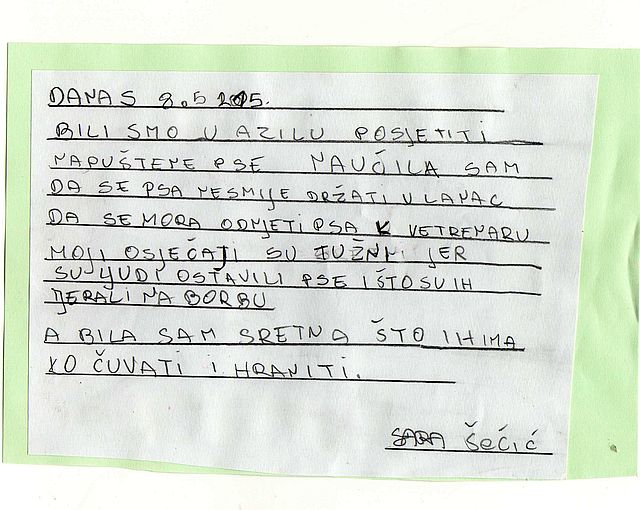 DANAS 8.5 2015.
BILI SMO U AZILU POSJETITI
NAPUŠTENE PSE NAUČILA SAM
DA SE PSA NESMIJE DRŽATI U LANAC
DA SE MORA ODNJETI PSA K VETRENARU
MOJI OSJEĆAJI SU TUŽNI JER
SU LJUDI OSTAVILI PSE I ŠTO SU IH
TJERALI NA BORBU
A BILA SAM SRETNA ŠTO IH IMA
KO ČUVATI I HRANITI.
SARA ŠEĆIĆ